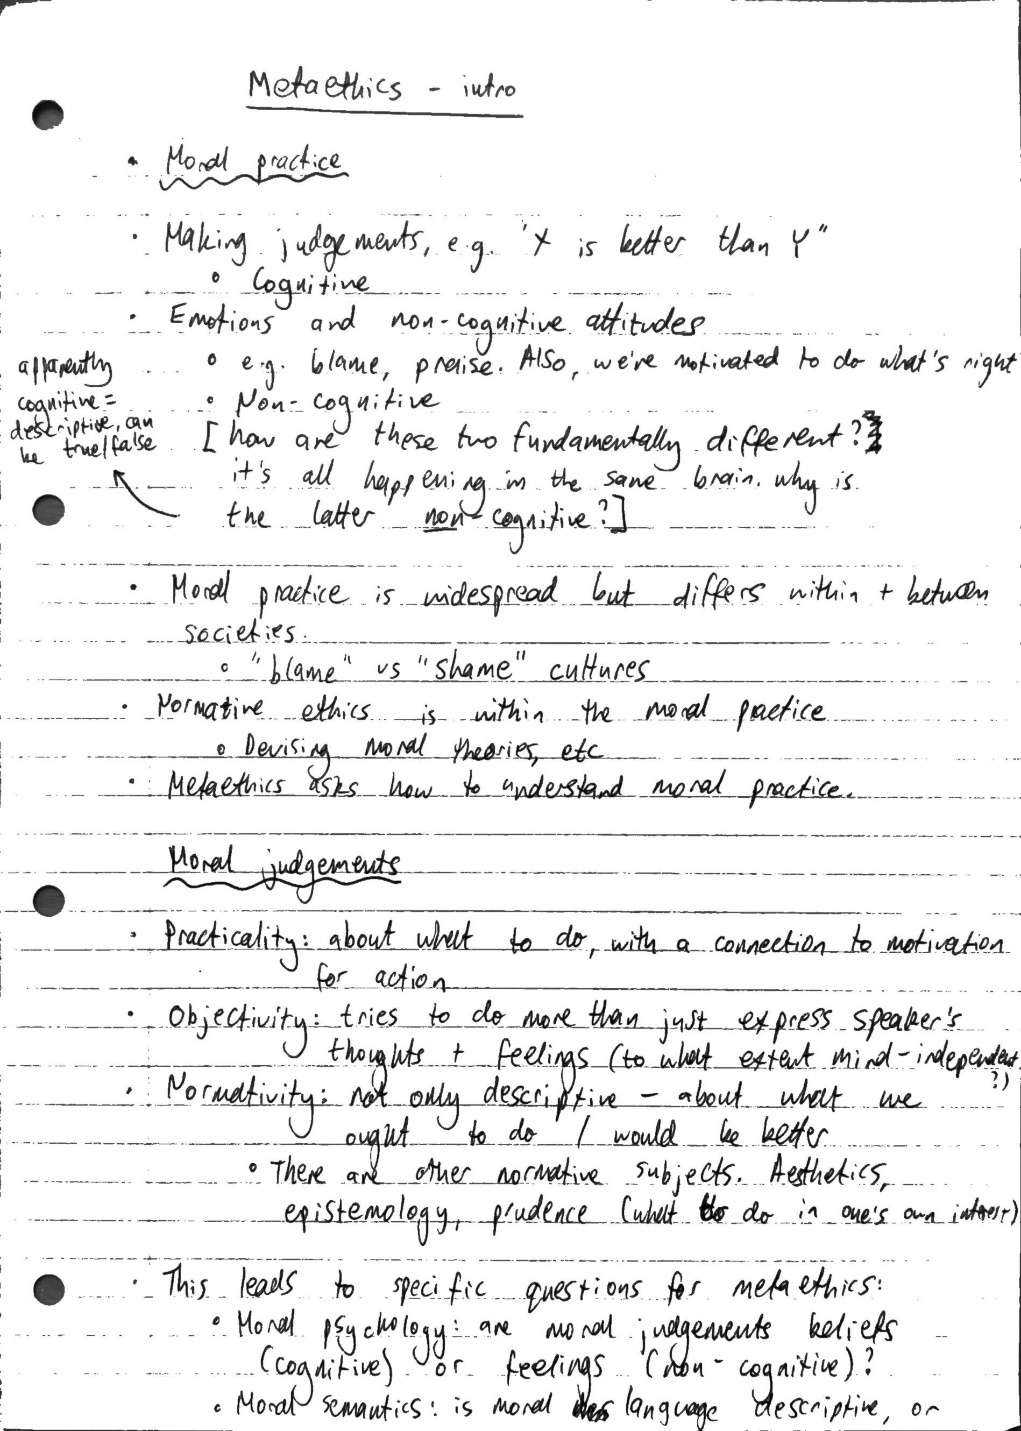 Metaethics - intro
• Moral practice
• Making judgements, e.g. "X is better than Y"
∘ Cognitive
• Emotions and non-cognitive attitudes
∘ e.g. blame, praise. Also, we're motivated to do what's right
∘ Non-cognitive
apparently
cognitive =
descriptive, can
be true/false
[how are these two fundamentally different?
it's all happening in the same brain. why is
the latter non-cognitive?]
• Moral practice is widespread but differs within + between
societies.
∘ "blame" vs "shame" cultures
• Normative ethics is within the moral practice
∘ Devising moral theories, etc
• Metaethics asks how to understand moral practice.
Moral judgements
• Practicality: about what to do, with a connection to motivation
for action
• Objectivity: tries to do more than just express speaker's
thoughts + feelings (to what extent mind-independent
?)
• Normativity: not only descriptive - about what we
ought to do / would be better
∘ There are other normative subjects. Aesthetics,
epistemology, prudence (what to do in one's own interest)
• This leads to specific questions for metaethics:
∘ Moral psychology: are moral judgements beliefs
(cognitive) or feelings (non-cognitive)?
∘ Moral semantics: is moral language descriptive, or